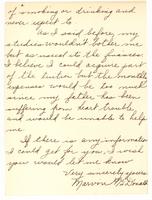 of smoking or drinking and
never expect to.
As I said before my
studies wouldn't bother me
but as usual its the finances
I believe I could acquire part
of the tuition but the monthly
expenses would be too much
since my father has been
suffering from heart trouble,
and would be unable to help
me.
If there is any information
I could get for you, I wish
you would let me know
Very sincerely yours